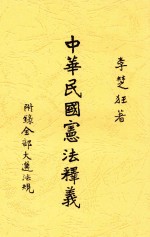 李楚狂著
中華民國憲法釋義
附錄全部大選法規